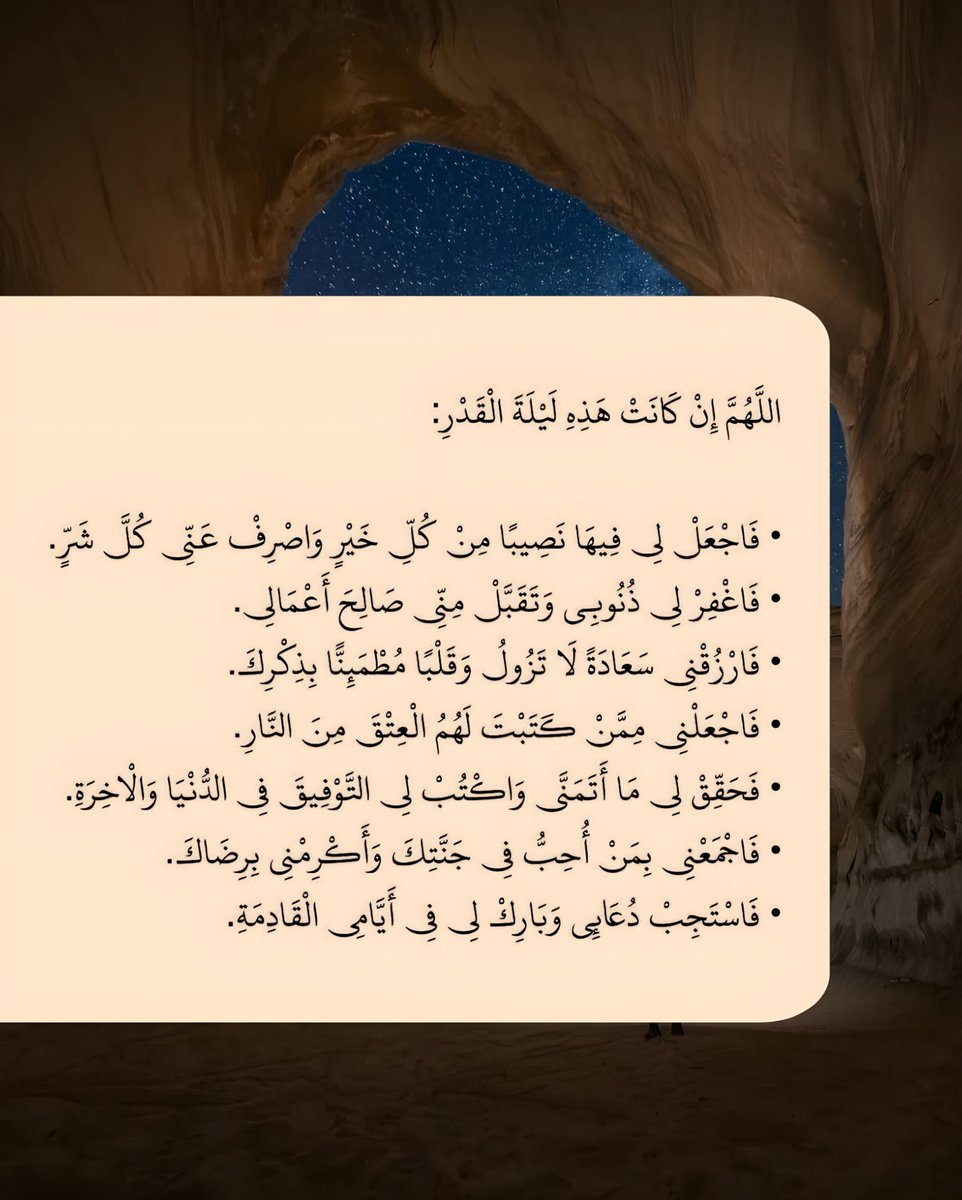 اللَّهُمَّ إِنْ كَانَتْ هَذِهِ لَيْلَةَ الْقَدْرِ:
• فَاجْعَلْ لِي فِيهَا نَصِيبًا مِنْ كُلِّ خَيْرٍ وَاصْرِفْ عَنِّي كُلَّ شَرٍّ.
• فَاغْفِرْ لِي ذُنُوبِي وَتَقَبَّلْ مِنِّي صَالِحَ أَعْمَالِي.
• فَارْزُقْنِي سَعَادَةً لَا تَزُولُ وَقَلْبًا مُطْمَئِنًّا بِذِكْرِكَ.
• فَاجْعَلْنِي مِمَّنْ كَتَبْتَ لَهُمُ الْعِتْقَ مِنَ النَّارِ.
• فَحَقِّقْ لِي مَا أَتَمَنَّى وَاكْتُبْ لِي التَّوْفِيقَ فِي الدُّنْيَا وَالْاخِرَةِ.
• فَاجْمَعْنِي بِمَنْ أُحِبُّ فِي جَنَّتِكَ وَأَكْرِمْنِي بِرِضَاكَ.
• فَاسْتَجِبْ دُعَايِي وَبَارِكْ لِي فِي أَيَّامِي الْقَادِمَةِ.